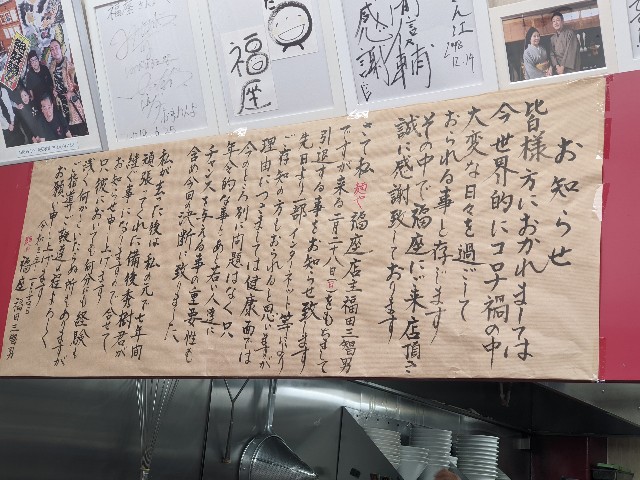 福座
感謝
お知らせ
皆様方におかれましては
今世界的にコロナ禍の中
大変な日々を過ごして
おられる事と存じます
その中で福座に来店頂き
誠に感謝致しております
さて私麺や福座店主福田三智男
ですが来る二月二八日(日)をもちまして
引退する事をお知らせ致します
先日より一部インターネット等により
ご存知の方もおられると思いますが
理由につきましては健康面では
今のところ別に問題はなく只
年令的な事もあり若い人達に
チャンスを与える事の重要性も
含め今回の決断に致りました
私が去った後は私の元で七年間
頑張ってくれた備後秀樹君が
継ぐ事になりますので合せて
お知らせ申し上げます
只後においても何分にも経験も
浅く何かといたらぬ所もありますが
ご指導ご鞭撻の程よろしく
お願い申し上げます
令和三年
麺や福座 福田三智男